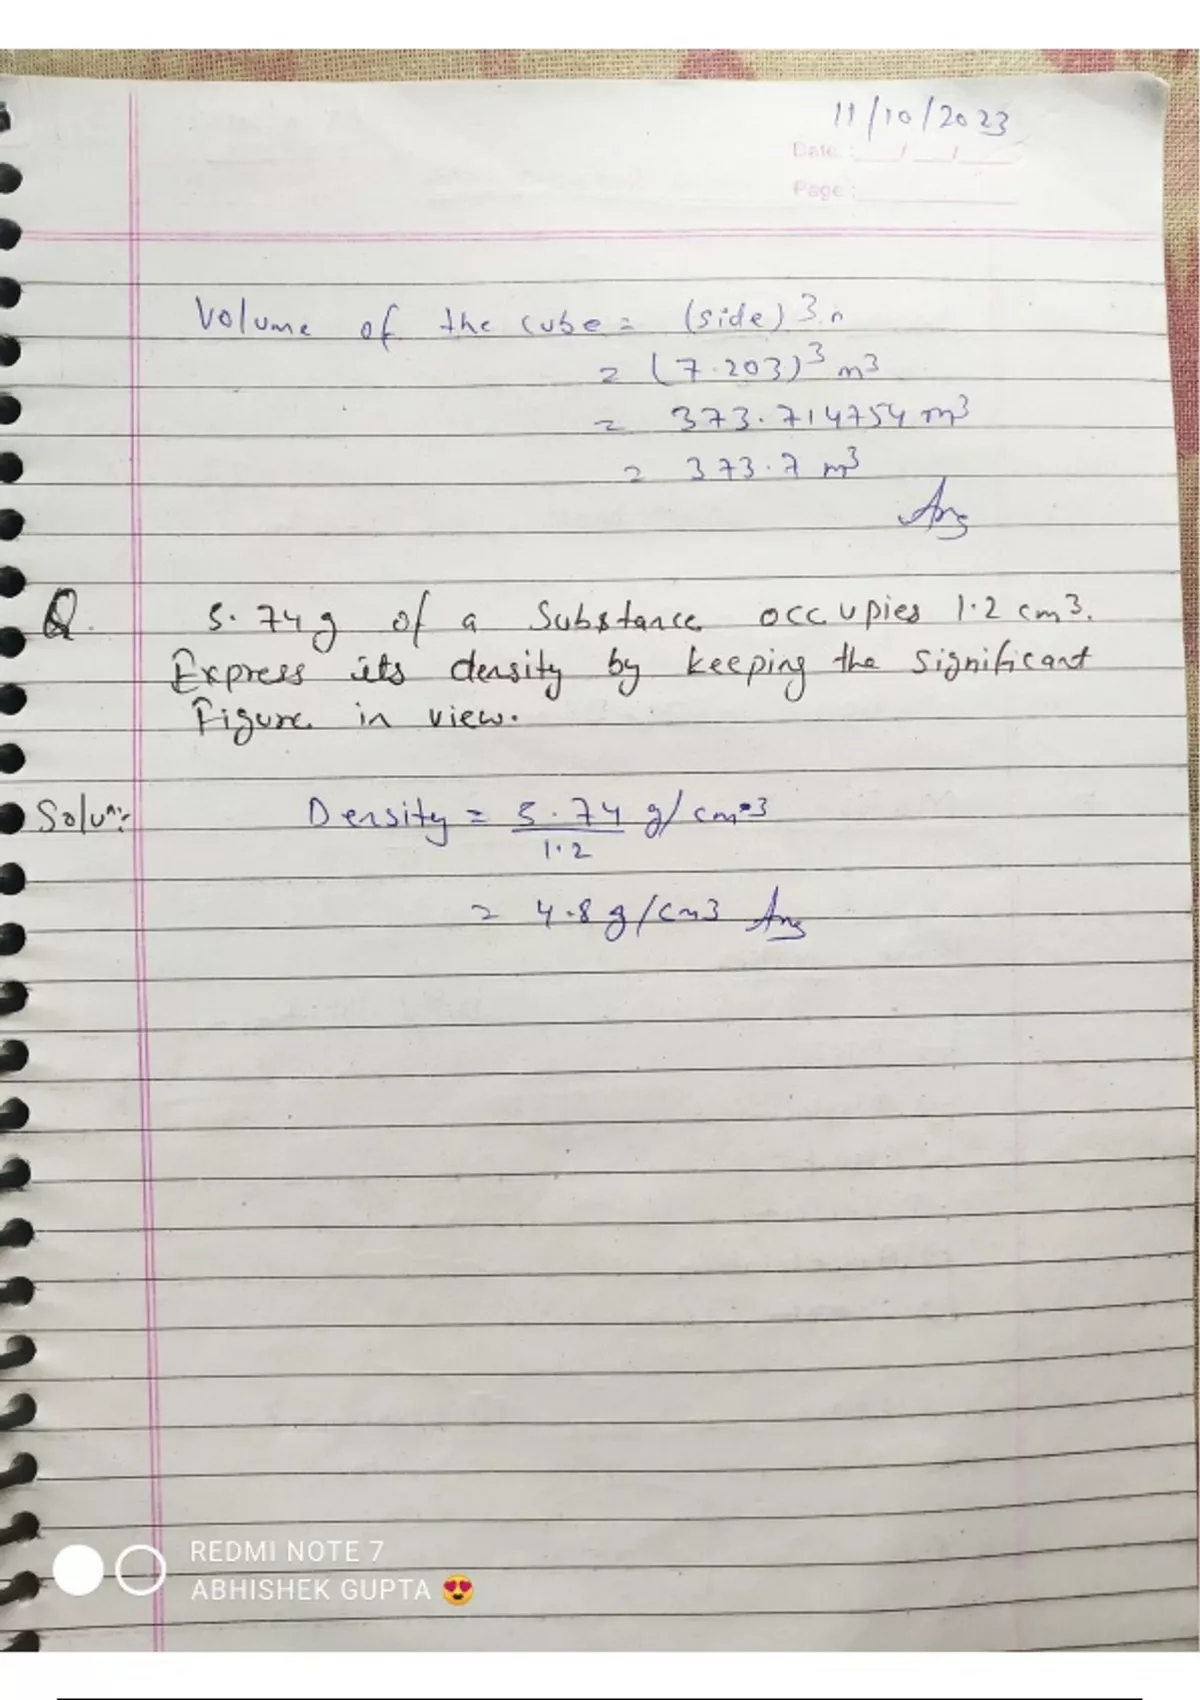 11/10/2023
Date : __/__/__
Page :
Volume of the cube = (side)3.n
= (7.203)3 m3
= 373.714754 m3
= 373.7 m3
Ans
Q. 5.74g of a Substance occupies 1.2 cm3.
Express its density by keeping the significant
Figure in view.
Solun:- Density = 5.74 g/cm3
1.2
= 4.8 g/cm3 Ans
REDMI NOTE 7
ABHISHEK GUPTA 😍